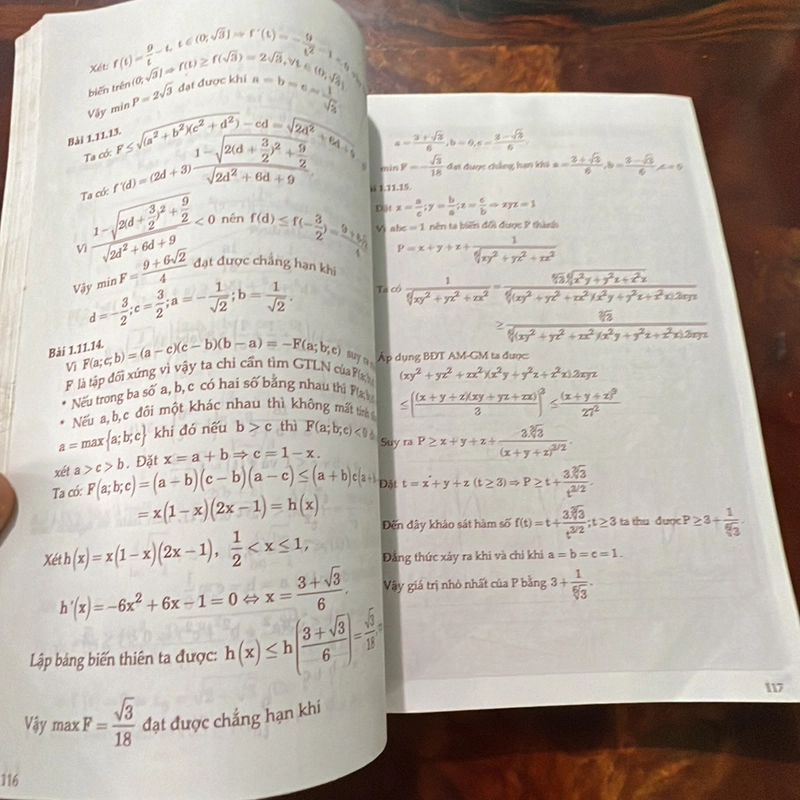 Xét: f(t) = 9/t − t, t ∈ (0; √3] ⇒ f'(t) = −9/t² − 1 < 0
biến trên (0; √3] ⇒ f(t) ≥ f(√3) = 2√3, ∀t ∈ (0; √3]
Vậy min P = 2√3 đạt được khi a = b = c = 1/√3
Bài 1.11.13.
Ta có: F ≤ √((a² + b²)(c² + d²)) − cd = √(2d² + 6d + 9
Ta có: f'(d) = (2d + 3) (1 − √(2(d + 3/2)² + 9/2))/√(2d² + 6d + 9)
Vì (1 − √(2(d + 3/2)² + 9/2))/√(2d² + 6d + 9) < 0 nên f(d) ≤ f(−3/2) = (9 + 6√2)/4
Vậy min F = (9 + 6√2)/4 đạt được chẳng hạn khi
d = −3/2; c = 3/2; a = −1/√2; b = 1/√2.
Bài 1.11.14.
Vì F(a; c; b) = (a − c)(c − b)(b − a) = −F(a; b; c) suy ra
F là tập đối xứng vì vậy ta chỉ cần tìm GTLN của F(a;
* Nếu trong ba số a, b, c có hai số bằng nhau thì F(a;
* Nếu a, b, c đôi một khác nhau thì không mất tính
a = max{a; b; c} khi đó nếu b > c thì F(a; b; c) < 0
xét a > c > b. Đặt x = a + b ⇒ c = 1 − x.
Ta có: F(a; b; c) = (a − b)(c − b)(a − c) ≤ (a + b)c(a +
= x(1 − x)(2x − 1) = h(x)
Xét h(x) = x(1 − x)(2x − 1), 1/2 < x ≤ 1,
h'(x) = −6x² + 6x − 1 = 0 ⇔ x = (3 + √3)/6.
Lập bảng biến thiên ta được: h(x) ≤ h((3 + √3)/6) = √3/18
Vậy max F = √3/18 đạt được chẳng hạn khi
116
a = (3 + √3)/6, b = 0, c = (3 − √3)/6.
min F = −√3/18 đạt được chẳng hạn khi a = (3 + √3)/6, b = (3 − √3)/6, c = 0
1.11.15.
Đặt x = a/c; y = b/a; z = c/b ⇒ xyz = 1
Vì abc = 1 nên ta biến đổi được P thành
P = x + y + z + 1/⁶√(xy² + yz² + zx²)
Ta có
Áp dụng BĐT AM-GM ta được:
(xy² + yz² + zx²)(x²y + y²z + z²x).3xyz
≤ [((x + y + z)(xy + yz + zx))/3]³ ≤ (x + y + z)⁹/27²
Suy ra P ≥ x + y + z + 3.∛3/(x + y + z)^(3/2).
Đặt t = x + y + z (t ≥ 3) ⇒ P ≥ t + 3.∛3/t^(3/2).
Đến đây khảo sát hàm số f(t) = t + 3.∛3/t^(3/2); t ≥ 3 ta thu được P ≥ 3 + 1/⁶√3.
Đẳng thức xảy ra khi và chỉ khi a = b = c = 1.
Vậy giá trị nhỏ nhất của P bằng 3 + 1/⁶√3.
117